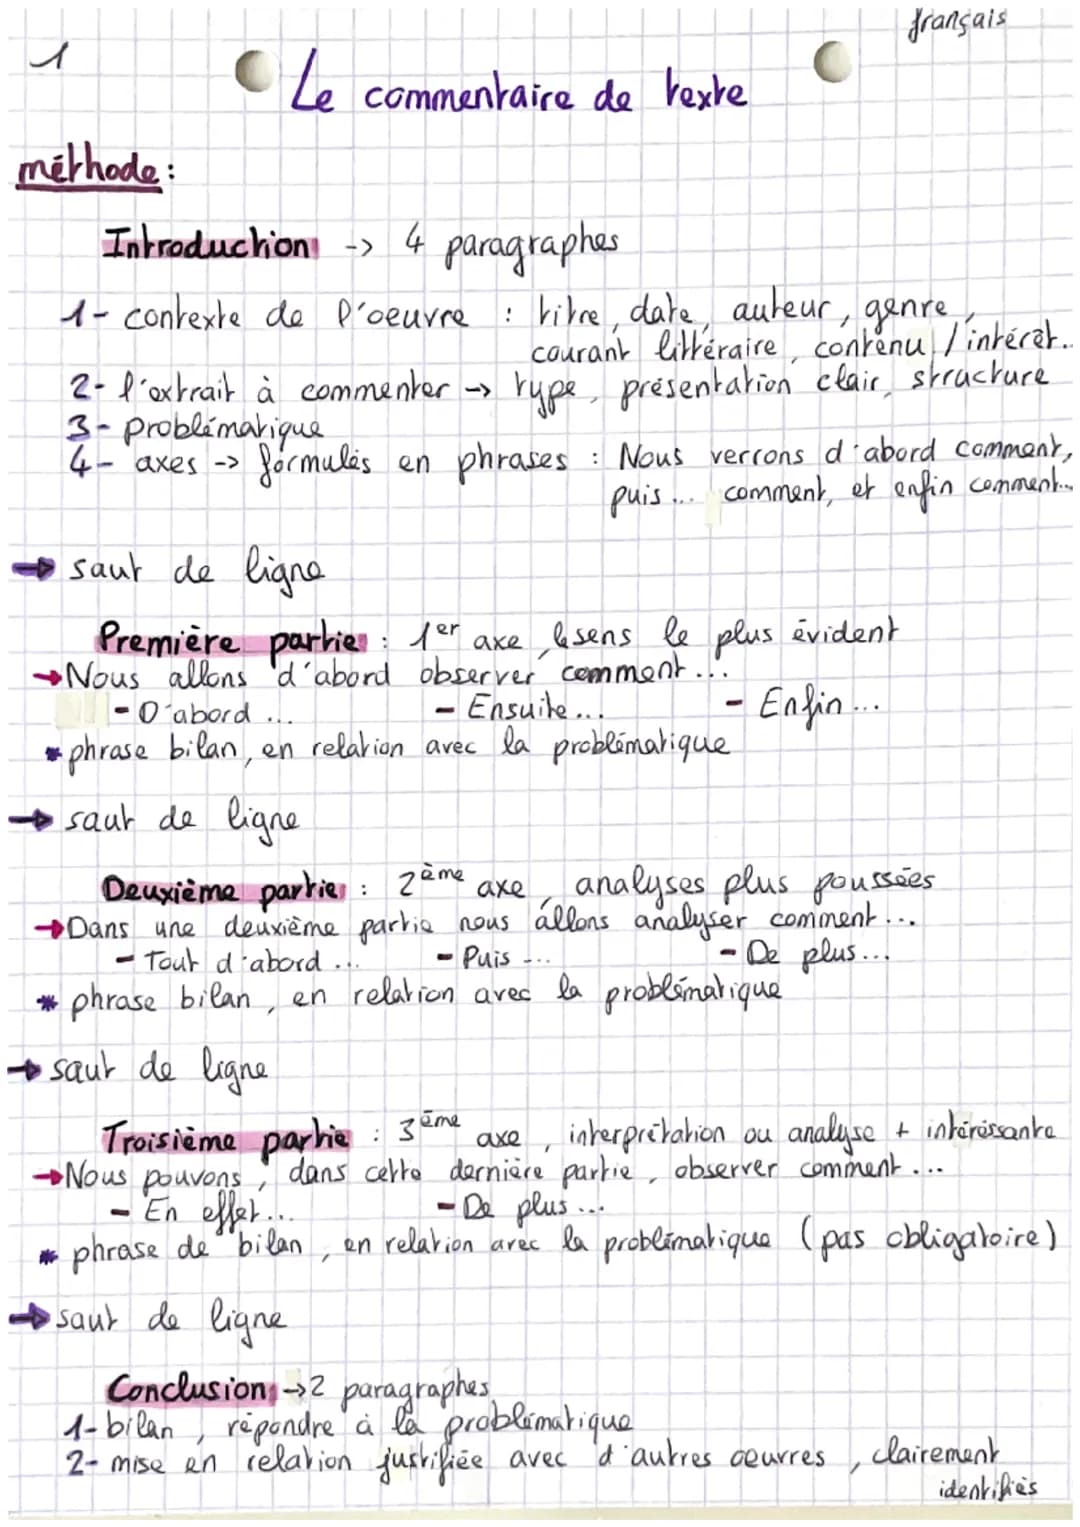 français
1
Le commentaire de texte
méthode :
Introduction -> 4 paragraphes
1- contexte de l'oeuvre : titre, date, auteur, genre,
courant littéraire, contenu / intérêt..
2- l'extrait à commenter → type, présentation clair, structure
3- problématique
4- axes -> formulés en phrases : Nous verrons d'abord comment,
puis... comment, et enfin comment...
→ saut de ligne
Première partie : 1er axe, le sens le plus évident
→ Nous allons d'abord observer comment...
- D'abord ... - Ensuite... - Enfin...
* phrase bilan, en relation avec la problématique
→ saut de ligne
Deuxième partie : 2ème axe, analyses plus poussées
→ Dans une deuxième partie nous allons analyser comment...
- Tout d'abord ... - Puis ... - De plus...
* phrase bilan, en relation avec la problématique
→ saut de ligne
Troisième partie : 3ème axe, interprétation ou analyse + intéressante
→ Nous pouvons, dans cette dernière partie, observer comment...
- En effet... - De plus...
* phrase de bilan, en relation avec la problématique (pas obligatoire)
→ saut de ligne
Conclusion → 2 paragraphes
1- bilan, répondre à la problématique
2- mise en relation justifiée avec d'autres oeuvres, clairement
identifiés